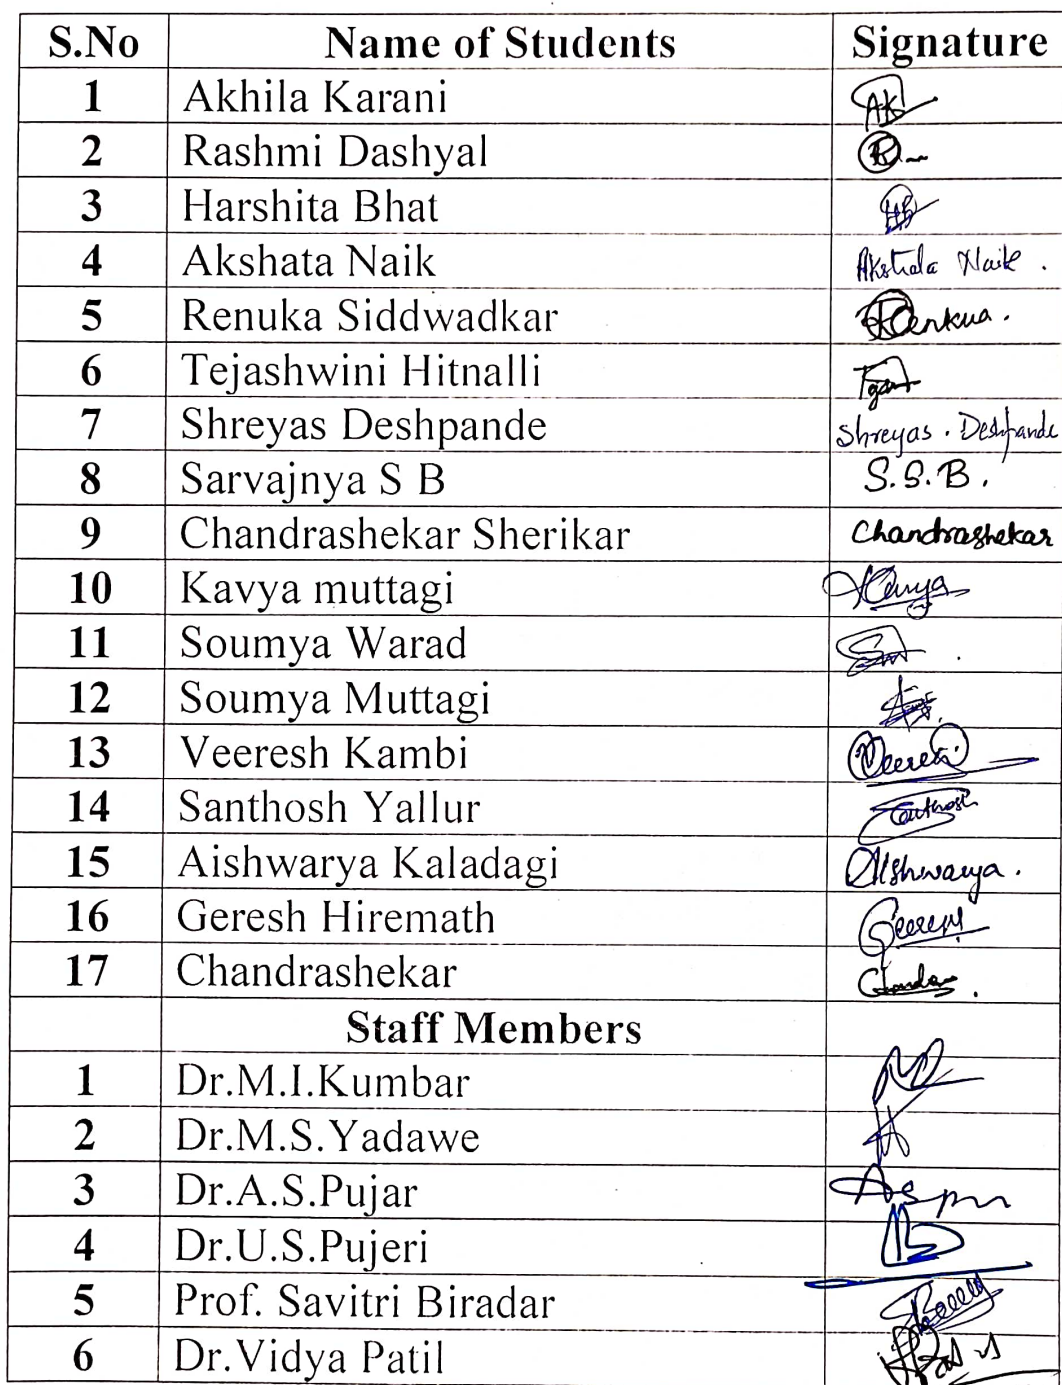 S.No Name of Students Signature
1 Akhila Karani AK
2 Rashmi Dashyal
3 Harshita Bhat
4 Akshata Naik Akshata Naik .
5 Renuka Siddwadkar
6 Tejashwini Hitnalli
7 Shreyas Deshpande Shreyas . Deshpande
8 Sarvajnya S B S.S.B.
9 Chandrashekar Sherikar Chandrashekar
10 Kavya muttagi Kavya
11 Soumya Warad
12 Soumya Muttagi
13 Veeresh Kambi Veeresh
14 Santhosh Yallur Santhosh
15 Aishwarya Kaladagi Aishwarya .
16 Geresh Hiremath
17 Chandrashekar
Staff Members
1 Dr.M.I.Kumbar
2 Dr.M.S.Yadawe
3 Dr.A.S.Pujar
4 Dr.U.S.Pujeri
5 Prof. Savitri Biradar
6 Dr.Vidya Patil